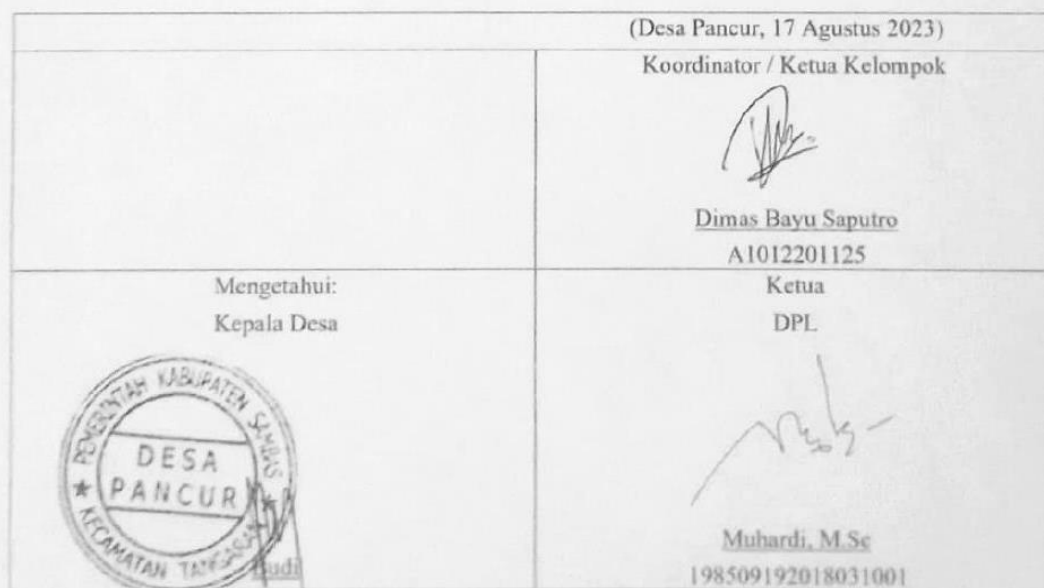 (Desa Pancur, 17 Agustus 2023)
Koordinator / Ketua Kelompok
Dimas Bayu Saputro
A1012201125
Mengetahui:
Kepala Desa
PEMERINTAH KABUPATEN SAMBAS
DESA
PANCUR
KECAMATAN TANGARAN
Budi
Ketua
DPL
Muhardi, M.Sc
198509192018031001